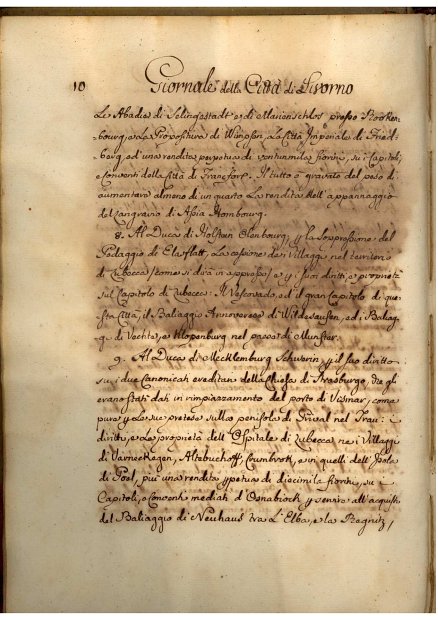 10 Giornale della Città di Livorno
Le Abadie di Selingastadt e di Marionschlos presso Rocken-
bourg, e la Propositura di Wimpfen, la Città Imperiale di Fried-
berg, ed una rendita perpetua di ventunmila fiorini, su i Capitoli,
e conventi della Città di Francfort. Il tutto è gravato del peso di
aumentare almeno di un quarto la rendita dell' appannaggio
del Langravio di Assia Hombourg.
8. Al Duca di Holstein Olenbourg, p la soppressione del
Pedaggio di Elasflatt, la cessione de Villaggi nel territorio
di Lubecca (come si dirà in appresso) e p i suoi diritti, e proprietà
sul Capitolo di Lubecca: Il Vescovado, ed il gran Capitolo di que-
sta Città, il Baliaggio Annoverese di Wildesausen, ed i Baliag-
gi di Vechte, e Klopenburg nel paese di Munster.
9. Al Duca di Mecklemburg Schwerin p il suo diritto
su i due Canonicati ereditari della Chiesa di Strasburgo, che gli
erano stati dati in rimpiazzamento del porto di Vismar, come
pure p le sue pretese sulla penisola di Priwal nel Trau: i
diritti, e la proprietà dell' Ospitale di Lubecca ne i Villaggi
di Warneckegen, Altebuchoff, Crumbrok, e in quelli dell' Isola
di Poel, più una rendita ppetua di diecimila fiorini, su i
Capitoli, e Conventi mediati d' Osnabrock p servire all' acquisto
del Baliaggio di Neuhaus tra l' Elba, e la Regnitz,